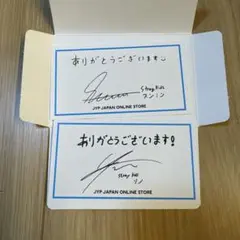 ありがとうございます。
Stray Kids
スンミン
JYP JAPAN ONLINE STORE
ありがとうございます!
Stray Kids
リノ
JYP JAPAN ONLINE STORE